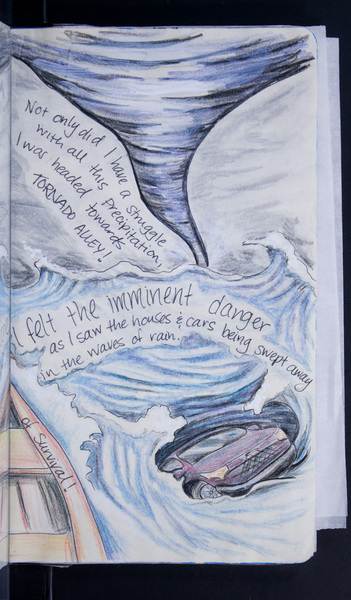 Not only did I have a struggle
with all this precipitation,
I was headed towards
TORNADO ALLEY!
I felt the imminent danger
as I saw the houses & cars being swept away
in the waves of rain.
of survival!